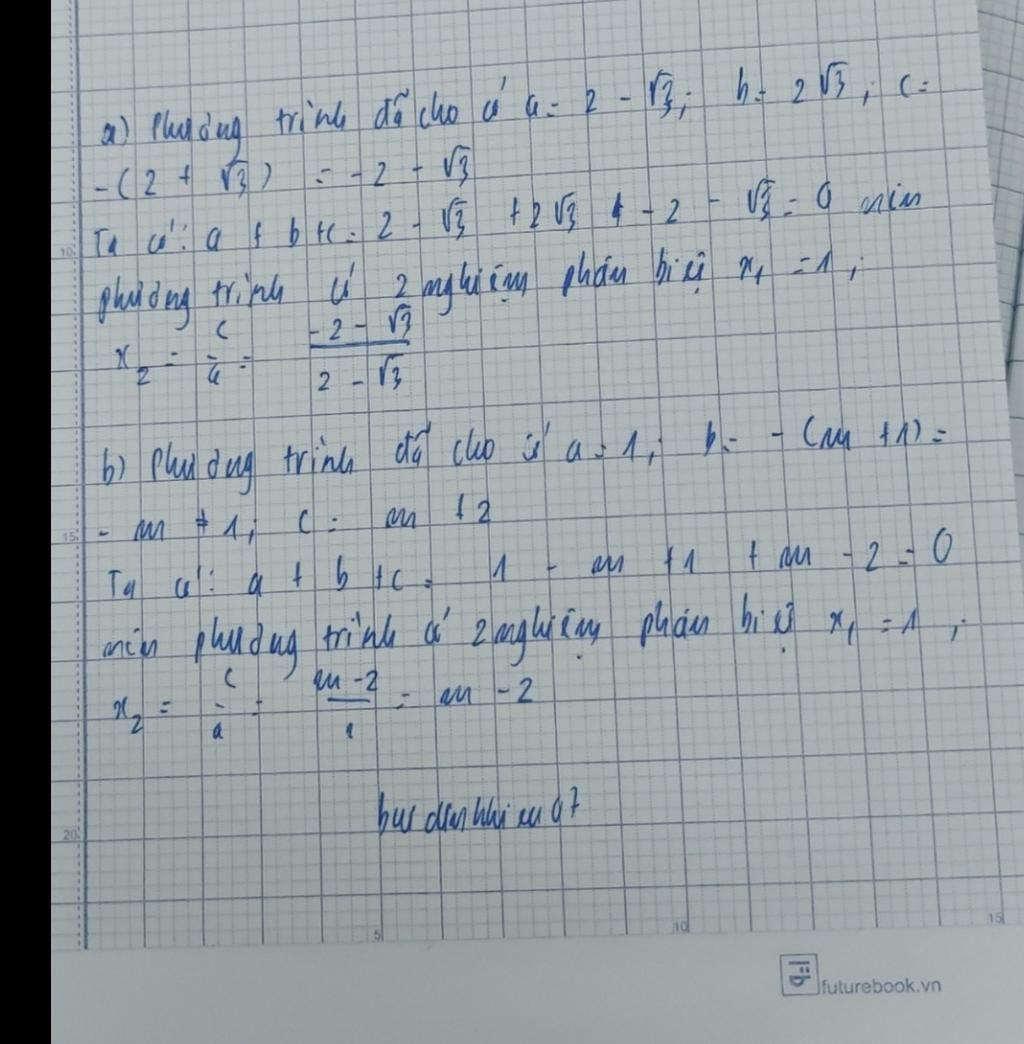 a) Phương trình đã cho có a = 2 - √3; b = 2√3; c =
-(2 + √3) = -2 - √3
Ta có: a + b + c = 2 - √3 + 2√3 + -2 - √3 = 0 nên
phương trình có 2 nghiệm phân biệt x₁ = 1;
x₂ = c/a = (-2 - √3)/(2 - √3)
b) Phương trình đã cho có a = 1; b = -(m + 1) =
- m + 1; c = m + 2
Ta có: a + b + c = 1 - m + 1 + m - 2 = 0
nên phương trình có 2 nghiệm phân biệt x₁ = 1;
x₂ = c/a = (m - 2)/1 = m - 2
10
15
20
5
10
15
futurebook.vn